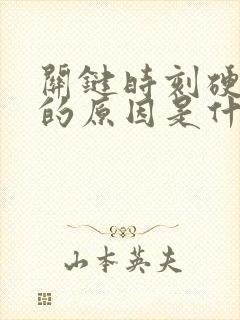 關鍵時刻硬
的原因是什
山本英夫